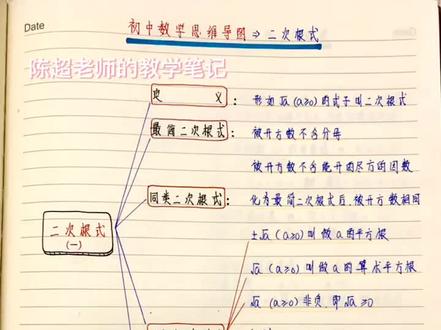 Date
初中数学思维导图 ⇒ 二次根式
陈超老师的教学笔记
定 义 : 形如√a (a≥0) 的式子叫二次根式
最简二次根式 : 被开方数不含分母
被开方数不含能开的尽方的因数
同类二次根式 : 化为最简二次根式后,被开方数相同
二次根式
(一)
±√a (a≥0) 叫做a的平方根
√a (a≥0) 叫做a的算术平方根
√a (a≥0) 非负,即√a ≥0